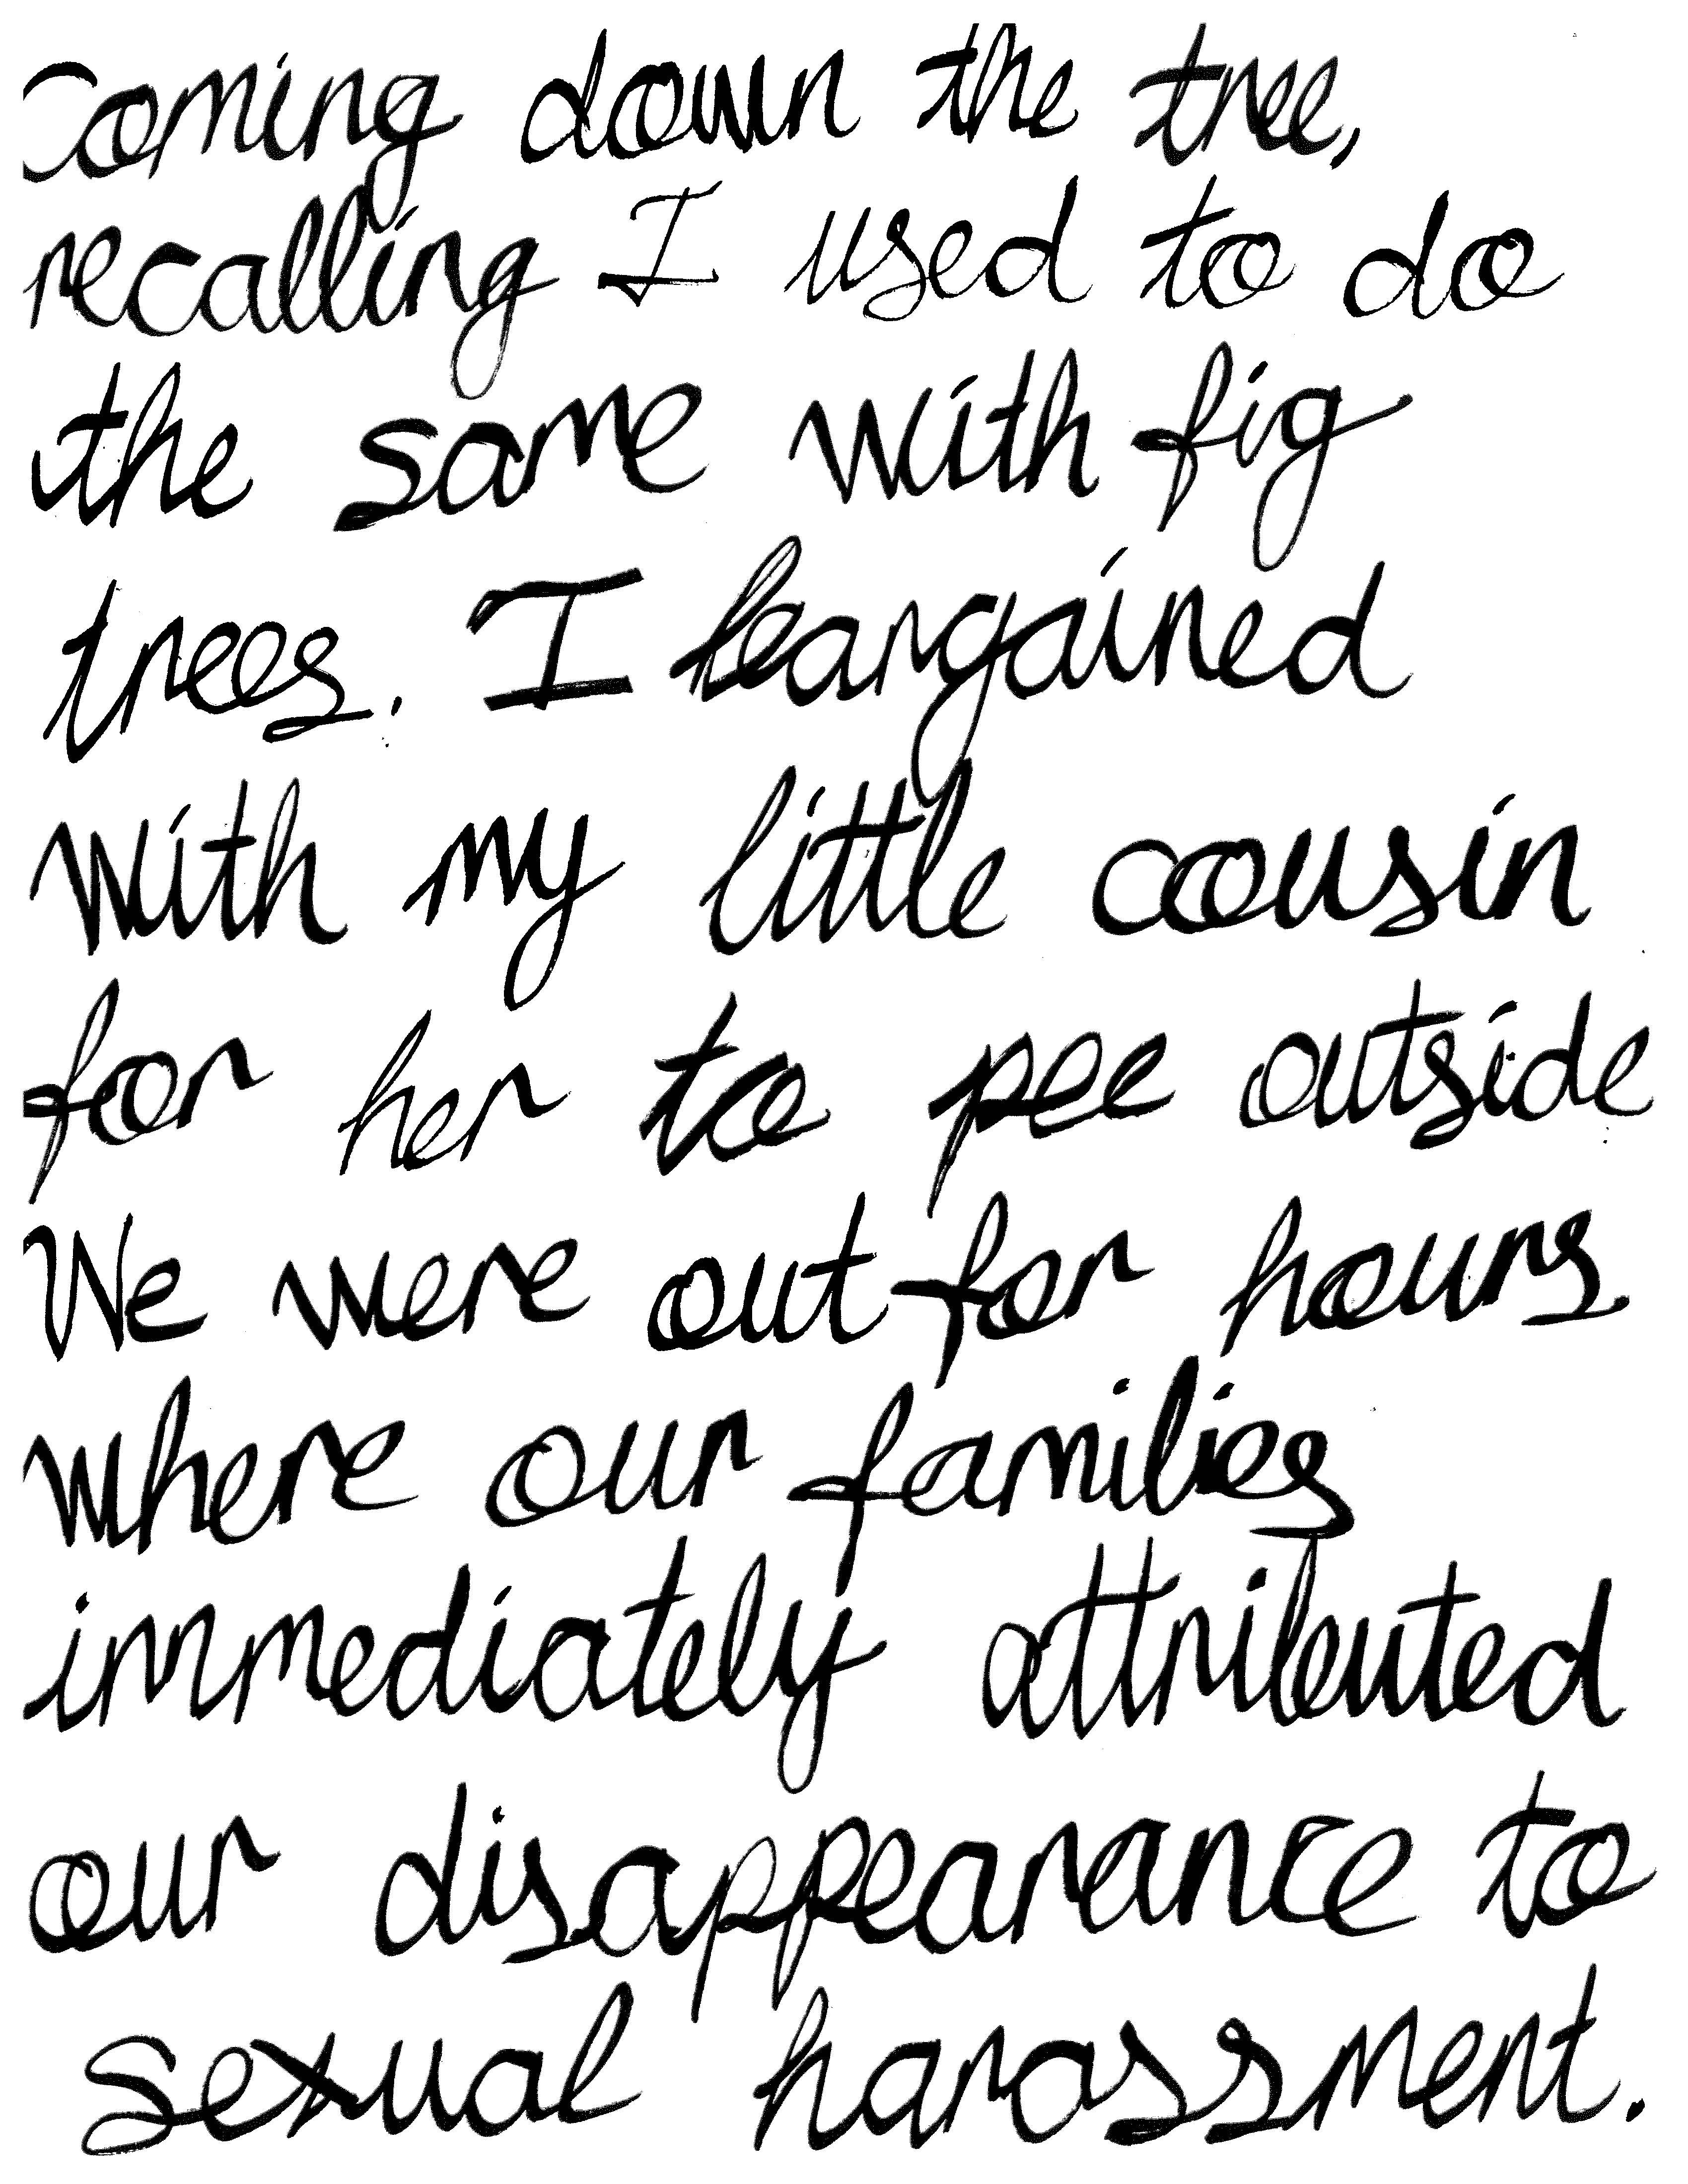 Coming down the tree,
recalling I used to do
the same with fig
trees. I bargained
with my little cousin
for her to pee outside
We were out for hours
where our families
immediately attributed
our disappearance to
sexual harassment.